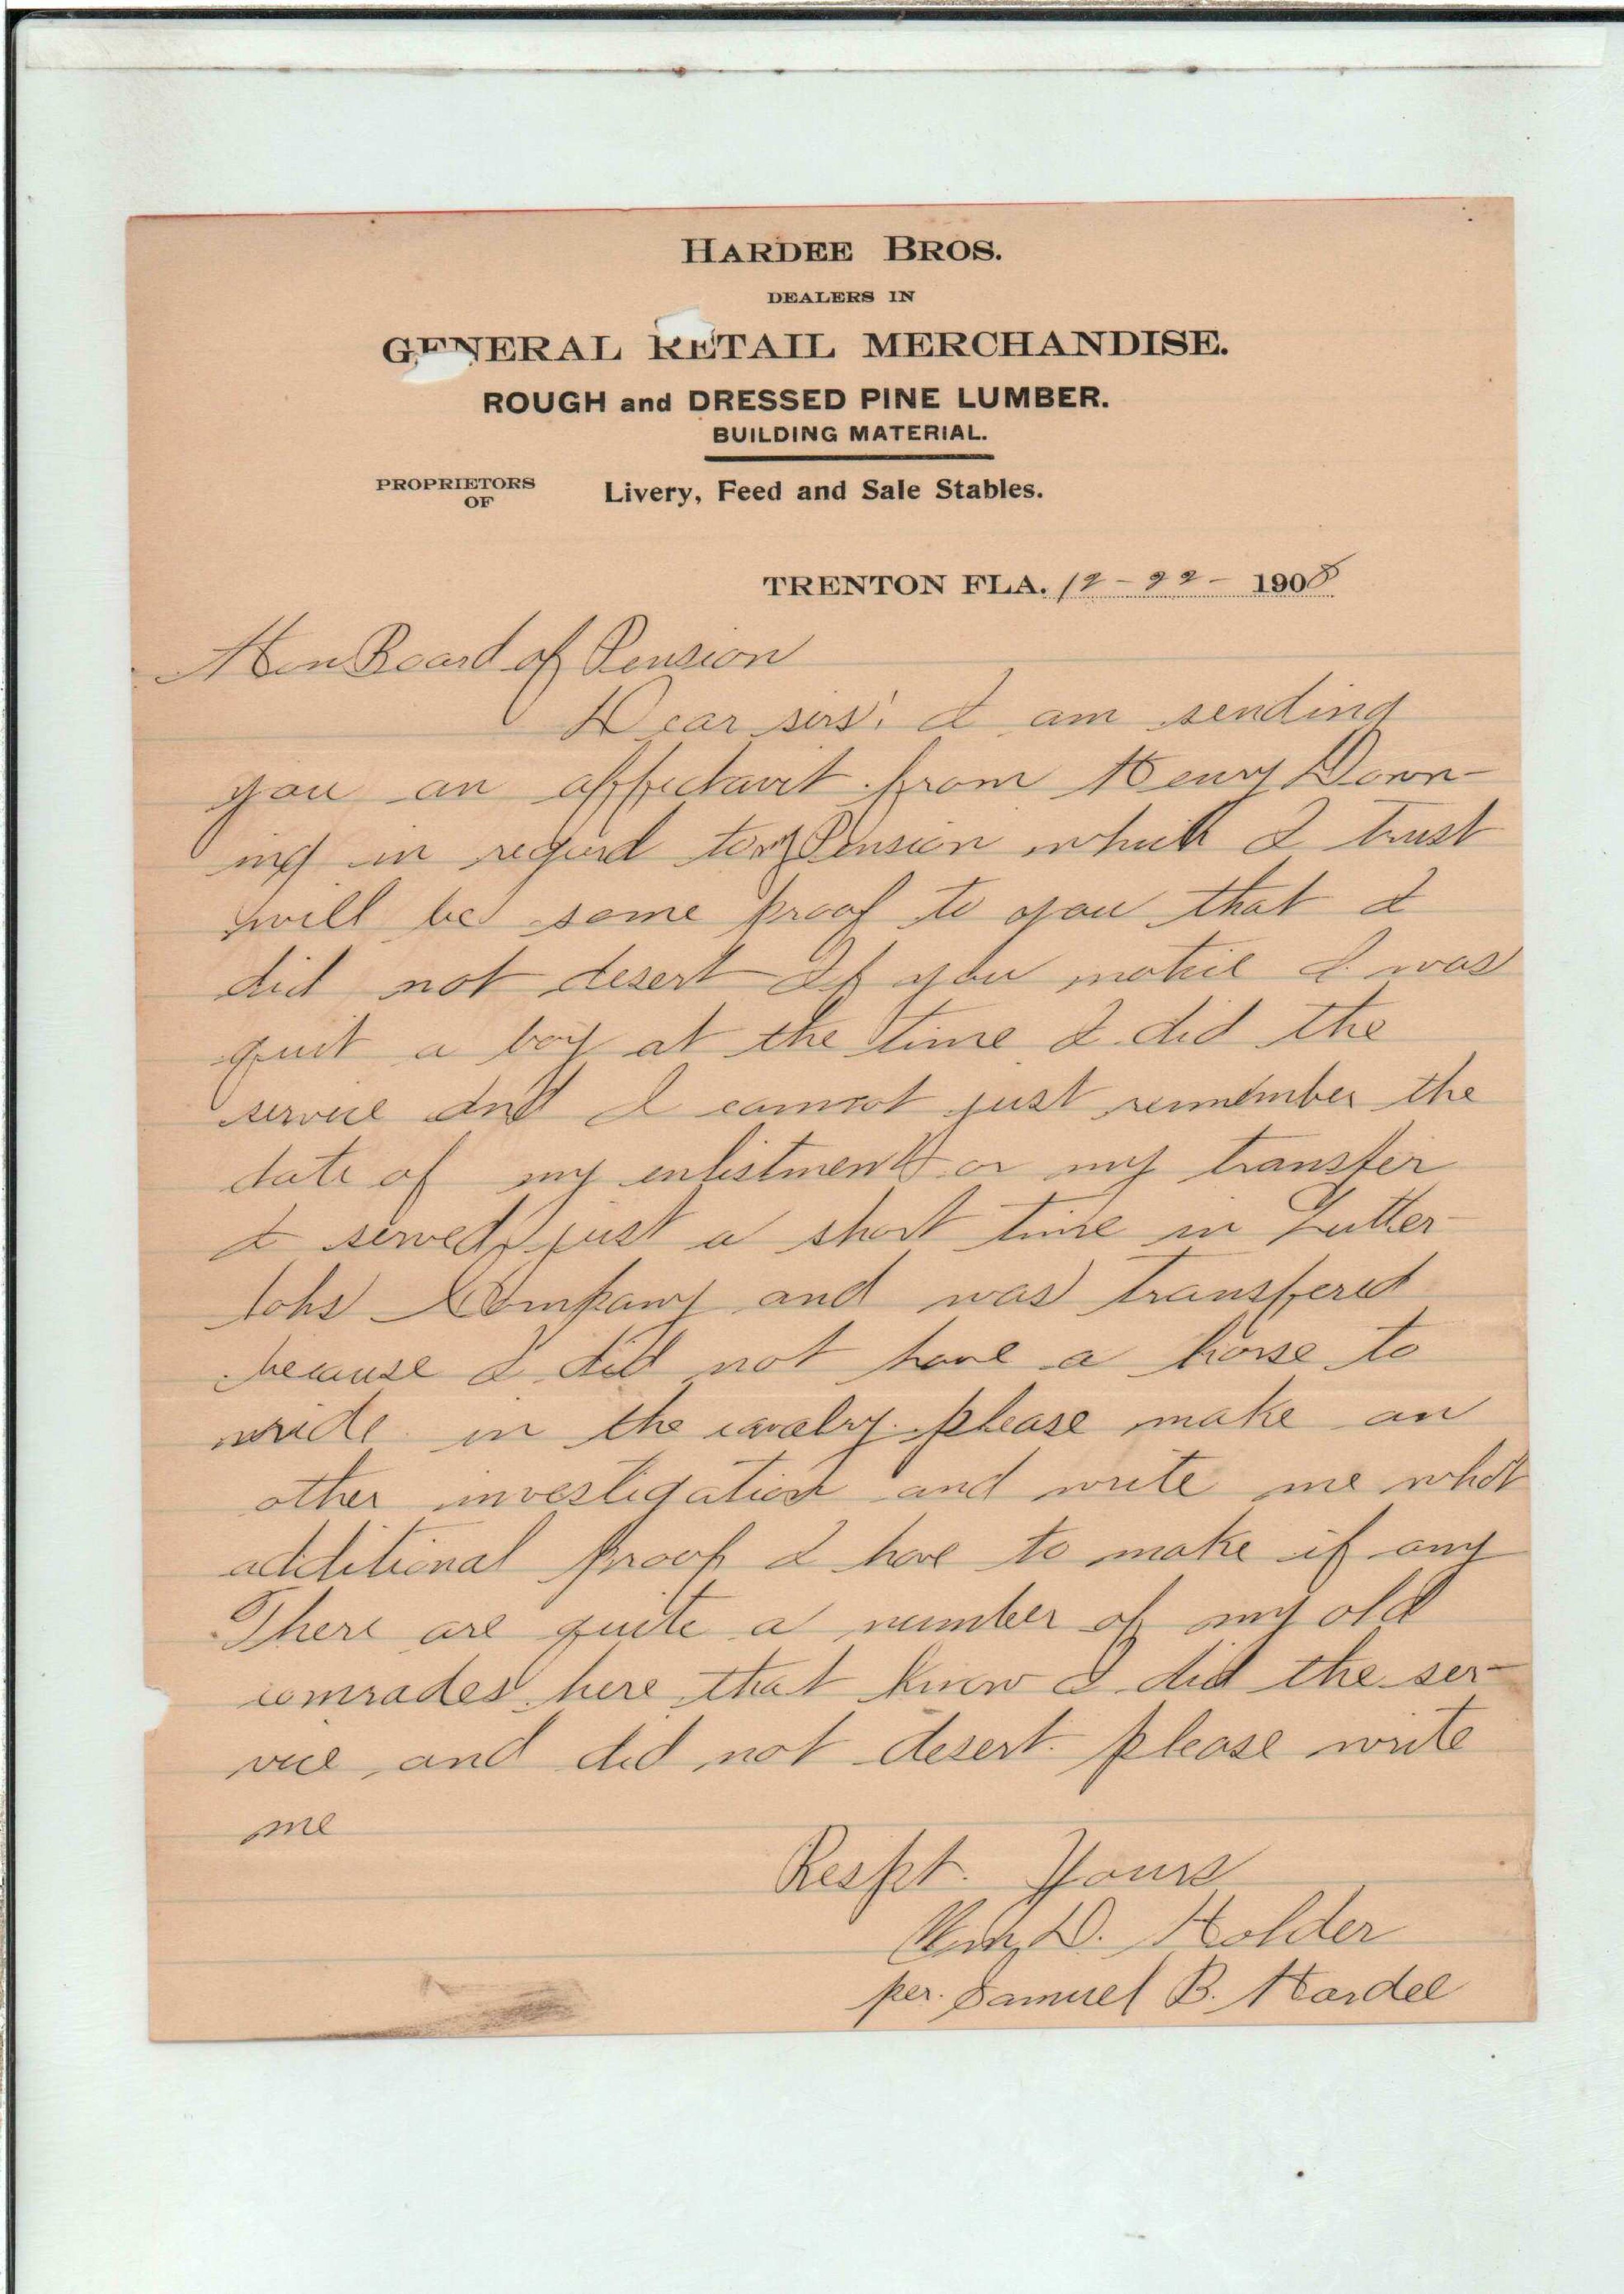 HARDEE BROS.
DEALERS IN
GENERAL RETAIL MERCHANDISE.
ROUGH and DRESSED PINE LUMBER.
BUILDING MATERIAL.
PROPRIETORS OF Livery, Feed and Sale Stables.
TRENTON FLA. 12-22- 1908
Hon Board of Pension
Dear sirs; I am sending
you an affidavit from Henry Down-
ing in regard to my Pension which I trust
will be some proof to you that I
did not desert If you notice I was
quit a boy at the time I did the
service and I cannot just remember the
date of my enlistment or my transfer
I served just a short time in Lutter-
lohs Company and was transfered
because I did not have a horse to
wride in the cavalry. please make an
other investigation and write me what
additional proof I have to make if any
There are quite a number of my old
comrades here that know I did the ser-
vice and did not desert. please write
me
Respt. Yours
Wm D. Holder
per. Samuel B. Hardee